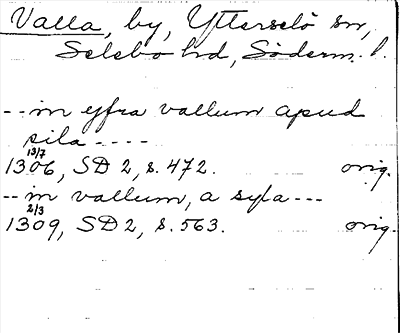 Valla, by, Ytterselö sn,
Selebo hd, Söderm. l.
-- in yfra vallum apud
sila ----
13/7
1306, SD 2, s. 472. orig.
-- in vallum, a syla ---
2/3
1309, SD 2, s. 563. orig.